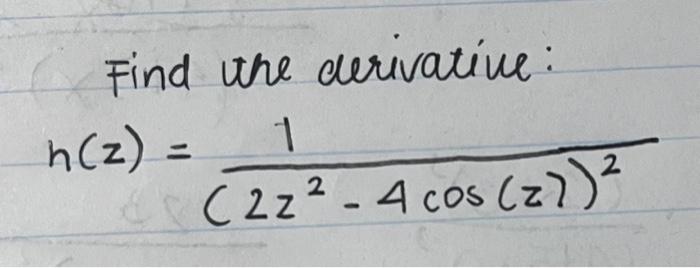 Find the derivative:
h(z) = 1 / (2z² - 4 cos(z))²